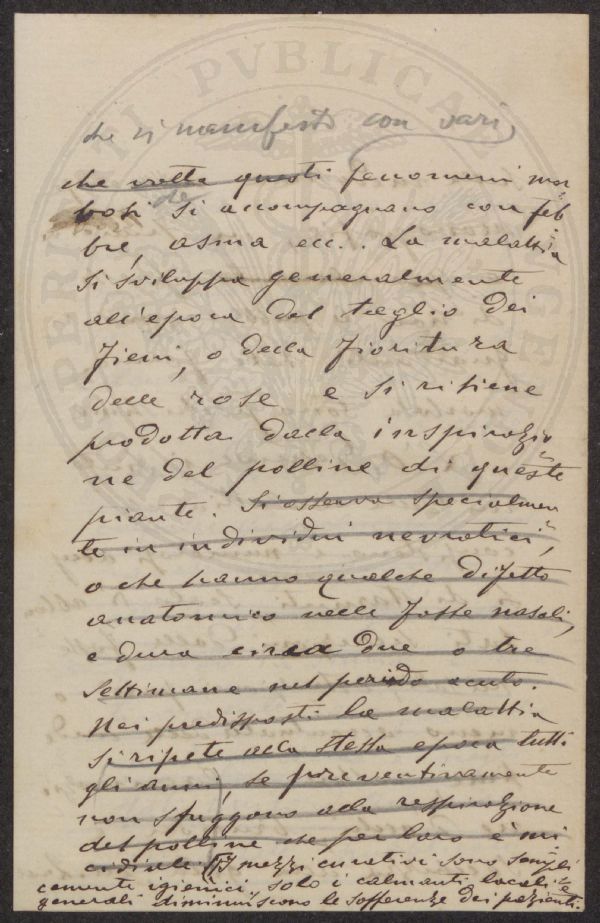 che si manifesta con vari
che volta questi fenomeni mor
de
bosi si accompagnano con feb
bre, asma ecc.. La malattia
si sviluppa generalmente
all'epoca del taglio dei
fieni, o della fioritura
delle rose e si ritiene
prodotta dalla inspirazio
ne del polline di queste
piante. Si osserva specialmen
te in individui nevrotici,
o che hanno qualche difetto
anatomico nelle fosse nasali,
e dura circa due o tre
settimane nel periodo acuto.
Nei predisposti la malattia
si ripete alla stessa epoca tutti
gli anni, se preventivamente
non sfuggono alla respirazione
del polline che per loro è mi
cidiale. I mezzi curativi sono sempli
cemente igienici, solo i calmanti locali e
generali diminuiscono le sofferenze dei pazienti.